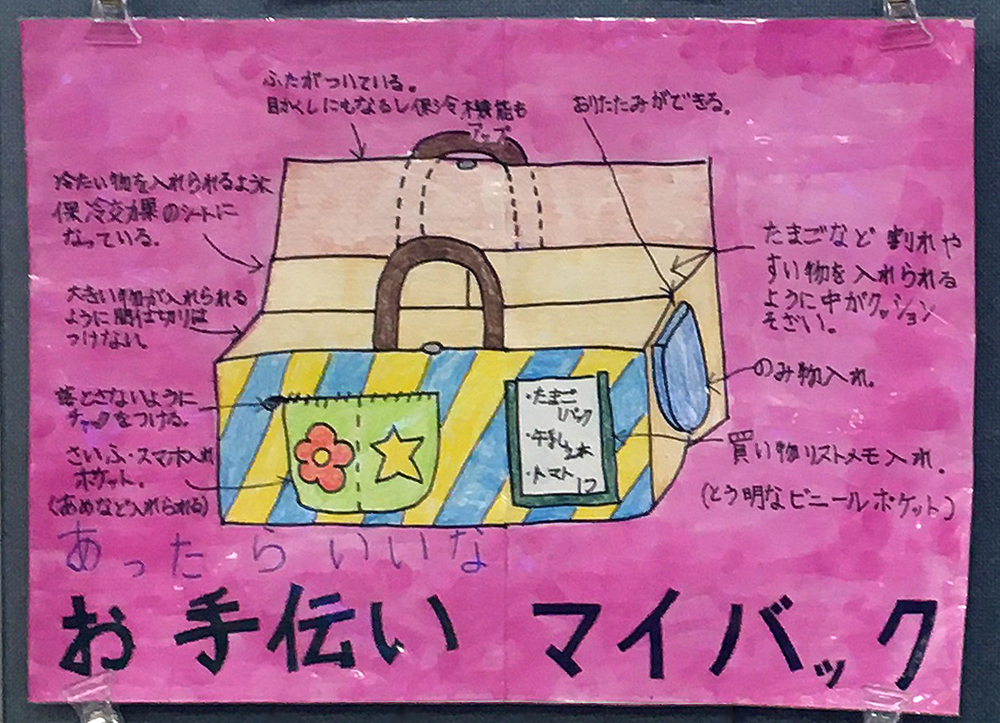 ふたがついている。
目かくしにもなるし保冷機能も
アップ
おりたたみができる。
冷たい物を入れられるように
保冷効果のシートに
なっている。
大きい物が入れられる
ように間仕切りは
つけない。
落とさないように
チャックをつける。
さいふ・スマホ入れ
ポケット。
(あめなど入れられる)
たまごなど割れや
すい物を入れられる
ように中がクッション
そざい。
のみ物入れ。
買い物リストメモ入れ。
(とう明なビニールポケット)
・たまご
1パック
・牛乳
2本
・トマト
12
あったらいいな
お手伝い マイバック